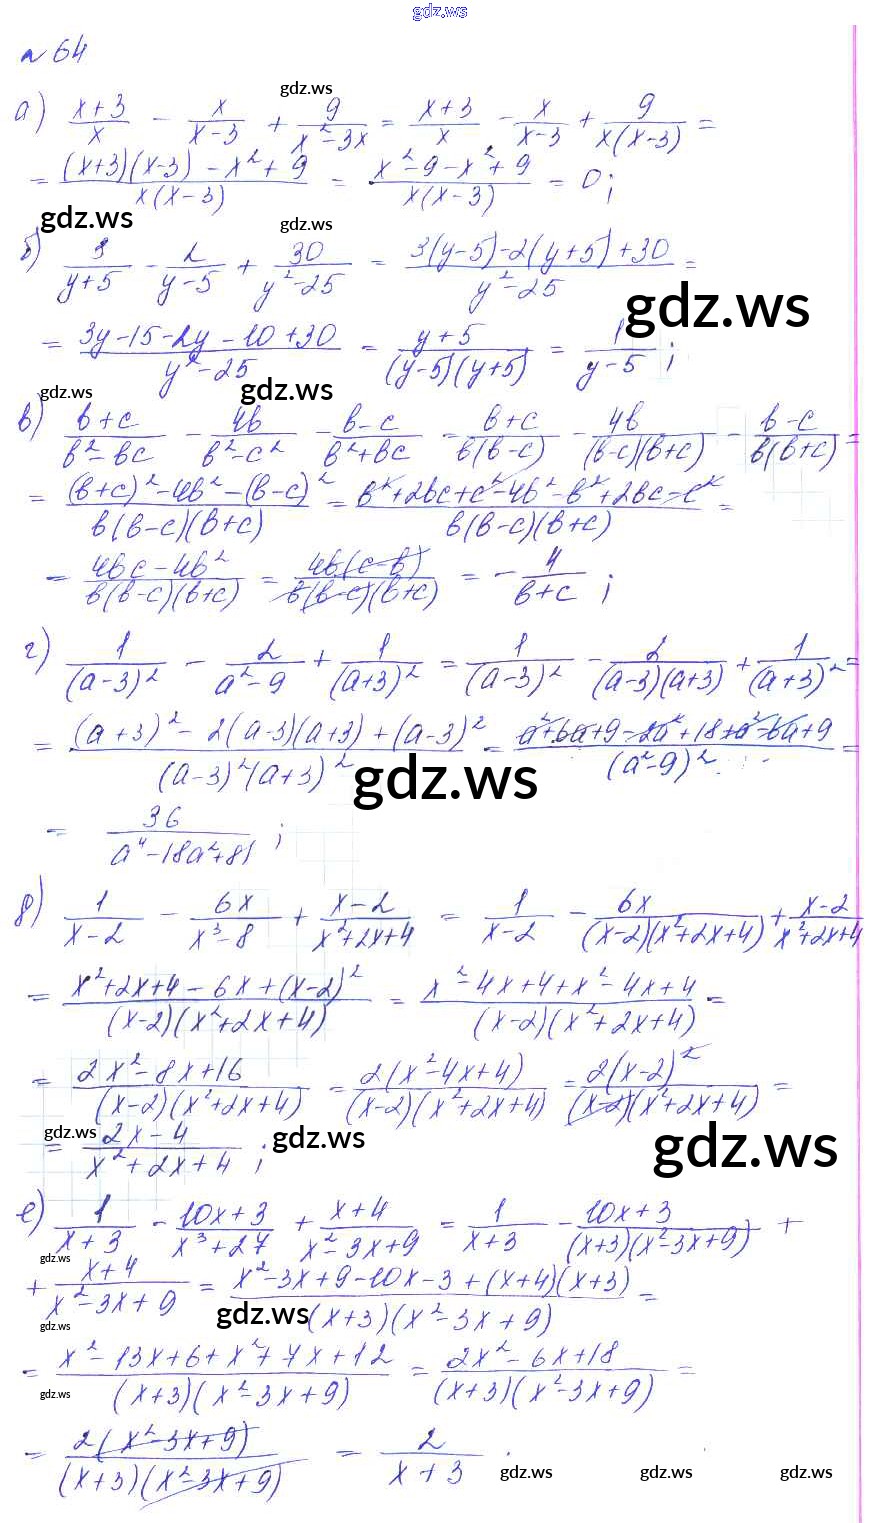 gdz.ws
№ 64
gdz.ws
а) (x+3)/x − x/(x−3) + 9/(x²−3x) = (x+3)/x − x/(x−3) + 9/(x(x−3)) =
= ((x+3)(x−3) − x² + 9)/(x(x−3)) = (x²−9−x²+9)/(x(x−3)) = 0;
gdz.ws gdz.ws
б) 3/(y+5) − 2/(y−5) + 30/(y²−25) = (3(y−5)−2(y+5)+30)/(y²−25) =
gdz.ws
= (3y−15−2y−10+30)/(y²−25) = (y+5)/((y−5)(y+5)) = 1/(y−5);
gdz.ws gdz.ws
в) (b+c)/(b²−bc) − 4b/(b²−c²) − (b−c)/(b²+bc) = (b+c)/(b(b−c)) − 4b/((b−c)(b+c)) − (b−c)/(b(b+c)) =
= ((b+c)²−4b²−(b−c)²)/(b(b−c)(b+c)) = (b²+2bc+c²−4b²−b²+2bc−c²)/(b(b−c)(b+c)) =
= (4bc−4b²)/(b(b−c)(b+c)) = (4b(c−b))/(b(b−c)(b+c)) = −4/(b+c);
г) 1/(a−3)² − 2/(a²−9) + 1/(a+3)² = 1/(a−3)² − 2/((a−3)(a+3)) + 1/(a+3)² =
= ((a+3)²−2(a−3)(a+3)+(a−3)²)/((a−3)²(a+3)²) = (a²+6a+9−2a²+18+a²−6a+9)/(a²−9)² =
gdz.ws
= 36/(a⁴−18a²+81);
д) 1/(x−2) − 6x/(x³−8) + (x−2)/(x²+2x+4) = 1/(x−2) − 6x/((x−2)(x²+2x+4)) + (x−2)/(x²+2x+4)
= (x²+2x+4−6x+(x−2)²)/((x−2)(x²+2x+4)) = (x²−4x+4+x²−4x+4)/((x−2)(x²+2x+4)) =
= (2x²−8x+16)/((x−2)(x²+2x+4)) = (2(x²−4x+4))/((x−2)(x²+2x+4)) = (2(x−2)²)/((x−2)(x²+2x+4)) =
gdz.ws gdz.ws gdz.ws
= (2x−4)/(x²+2x+4);
е) 1/(x+3) − (10x+3)/(x³+27) + (x+4)/(x²−3x+9) = 1/(x+3) − (10x+3)/((x+3)(x²−3x+9)) +
gdz.ws
+ (x+4)/(x²−3x+9) = (x²−3x+9−10x−3+(x+4)(x+3))/((x+3)(x²−3x+9)) =
gdz.ws gdz.ws
= (x²−13x+6+x²+7x+12)/((x+3)(x²−3x+9)) = (2x²−6x+18)/((x+3)(x²−3x+9)) =
gdz.ws
= (2(x²−3x+9))/((x+3)(x²−3x+9)) = 2/(x+3).
gdz.ws gdz.ws gdz.ws